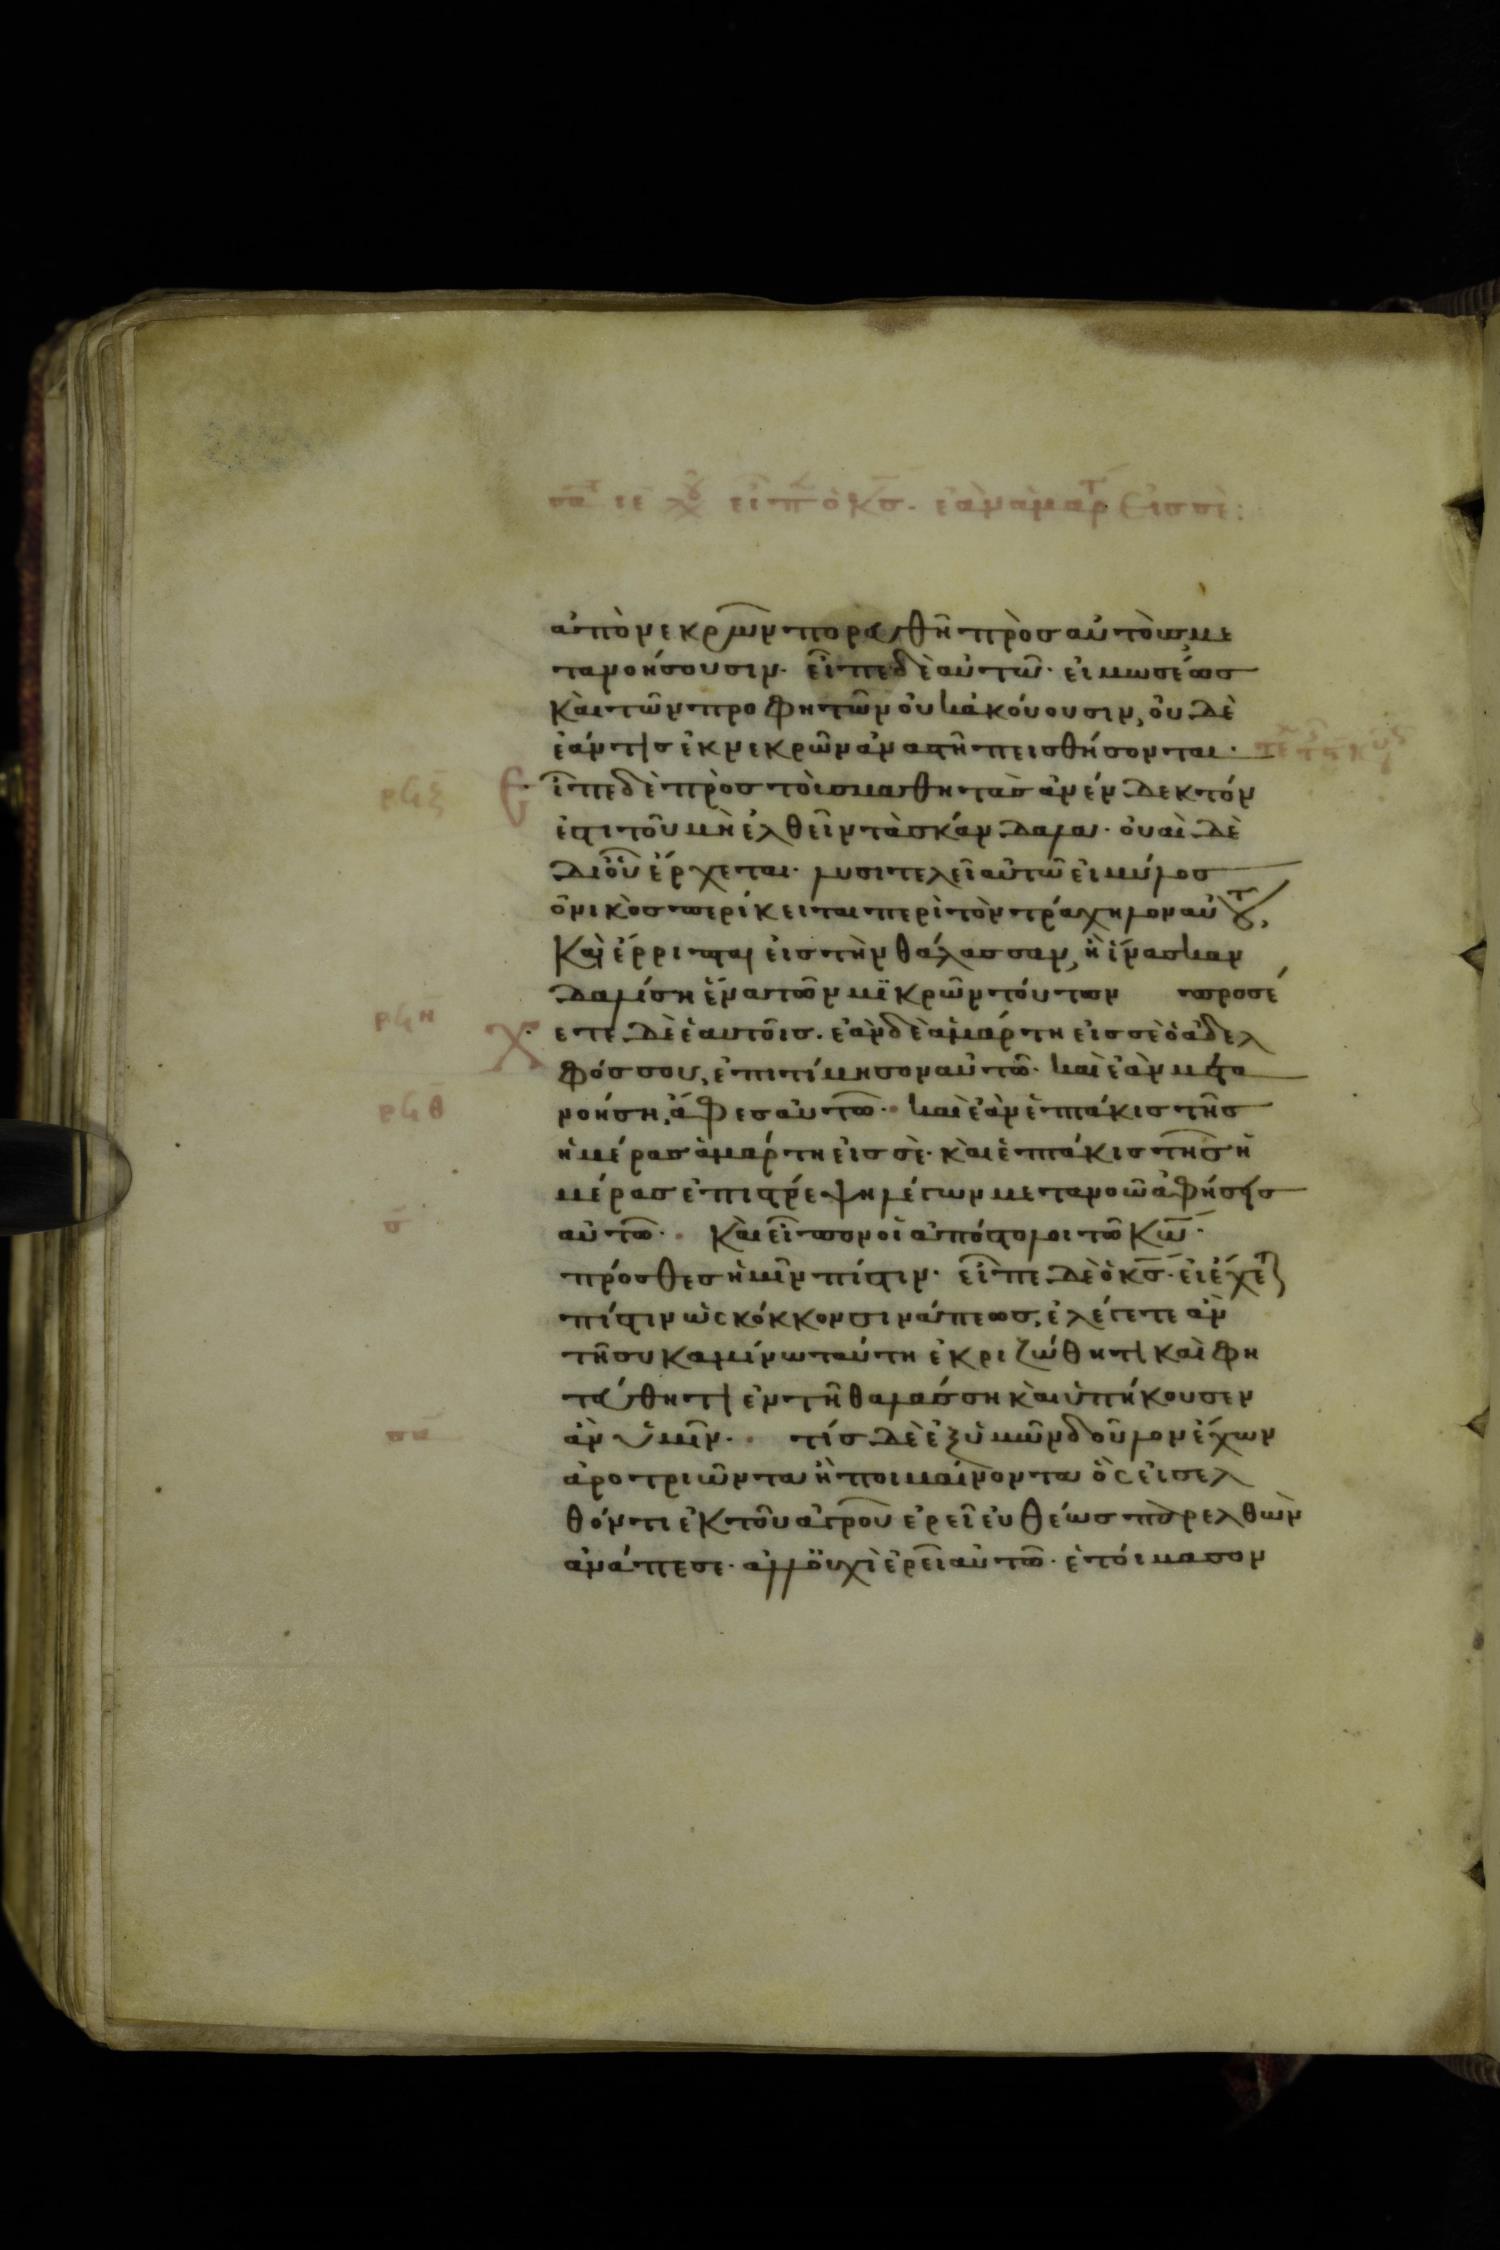 σα ιε εἶπ ὁ κσ. ἐὰν ἁμαρτ εἰς σὲ:
ἀπὸ νεκρῶν πορευθῆ πρὸς αὐτοὺς με
τανοήσουσιν. εἶπε δὲ αὐτῶ. εἰ μωσέως
καὶ τῶν προφητῶν οὐκ ἀκούουσιν, οὐδὲ
ἐάν τις ἐκ νεκρῶν ἀναστῆ πεισθήσονται.
ρϟζ Εἶπε δὲ πρὸς τοὺς μαθητὰς ἀνένδεκτόν
ἐστι τοῦ μὴ ἐλθεῖν τὰ σκάνδαλα. οὐαὶ δὲ
δι οὗ ἔρχεται. λυσιτελεῖ αὐτῶ εἰ μύλος
ὀνικὸς περίκειται περὶ τὸν τράχηλον αὐτοῦ,
καὶ ἔρριπται εἰς τὴν θάλασσαν, ἢ ἵνα σκαν
δαλίση ἕνα τῶν μικρῶν τούτων προσέ
ρϟη χετε δὲ ἑαυτοῖς. ἐὰν δὲ ἁμάρτη εἰς σὲ ὁ ἀδελ
φός σου, ἐπιτίμησον αὐτῶ. καὶ ἐὰν μετα
ρϟθ νοήση, ἄφες αὐτῶ. καὶ ἐὰν ἑπτάκις τῆς
ἡμέρας ἁμάρτη εἰς σὲ. καὶ ἑπτάκις τῆς ἡ
μέρας ἐπιστρέψη λέγων μετανοῶ ἀφήσεις
σ αὐτῶ. καὶ εἶπον οἱ ἀπόστολοι τῶ κω.
πρόσθες ἡμῖν πίστιν. εἶπε δὲ ὁ κσ. εἰ ἔχετε
πίστιν ὡς κόκκον σινάπεως, ἐλέγετε ἂν
τῆ συκαμίνω ταύτη ἐκριζώθητι καὶ φη
τεύθητι ἐν τῆ θαλάσση καὶ ὑπήκουσεν
σα ἂν ὑμῖν. τίς δὲ ἐξ ὑμῶν δοῦλον ἔχων
ἀροτριῶντα ἢ ποιμαίνοντα ὃς εἰσελ
θόντι ἐκ τοῦ ἀγροῦ ἐρεῖ εὐθέως παρελθὼν
ἀνάπεσε. ἀλλ οὐχὶ ἐρεῖ αὐτῶ. ἑτοίμασον